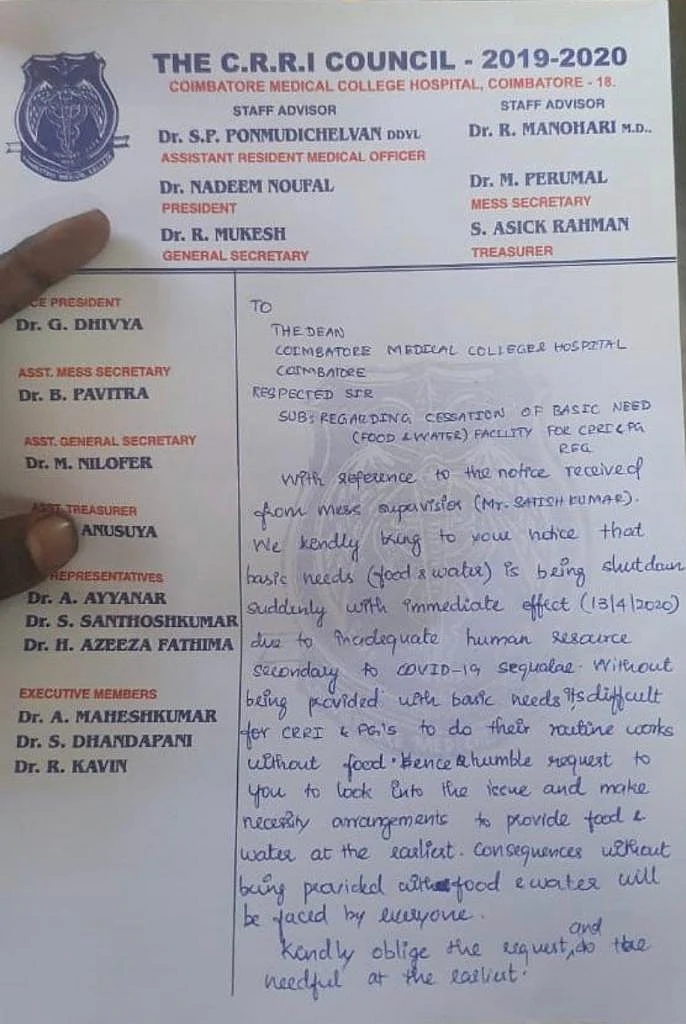 THE C.R.R.I COUNCIL - 2019-2020
COIMBATORE MEDICAL COLLEGE HOSPITAL, COIMBATORE - 18.
STAFF ADVISOR
Dr. S.P. PONMUDICHELVAN DDVL
ASSISTANT RESIDENT MEDICAL OFFICER
STAFF ADVISOR
Dr. R. MANOHARI M.D..
Dr. NADEEM NOUFAL
PRESIDENT
Dr. M. PERUMAL
MESS SECRETARY
Dr. R. MUKESH
GENERAL SECRETARY
S. ASICK RAHMAN
TREASURER
CE PRESIDENT
Dr. G. DHIVYA
ASST. MESS SECRETARY
Dr. B. PAVITRA
ASST. GENERAL SECRETARY
Dr. M. NILOFER
ASST. TREASURER
ANUSUYA
REPRESENTATIVES
Dr. A. AYYANAR
Dr. S. SANTHOSHKUMAR
Dr. H. AZEEZA FATHIMA
EXECUTIVE MEMBERS
Dr. A. MAHESHKUMAR
Dr. S. DHANDAPANI
Dr. R. KAVIN
TO
THE DEAN
COIMBATORE MEDICAL COLLEGE & HOSPITAL
COIMBATORE
RESPECTED SIR
SUB: REGARDING CESSATION OF BASIC NEED
(FOOD & WATER) FACILITY FOR CRRI & PG
REG
With reference to the notice received
from mess supervisior (Mr. SATISH KUMAR).
We kendly bring to your notice that
basic needs (food & water) is being shutdown
suddenly with immediate effect (13/4/2020)
due to inadequate human resource
secondary to COVID-19 sequalae. Without
being provided with basic needs its difficult
for CRRI & PG's to do their routine works
without food. Hence a humble request to
you to look into the issue and make
necessity arrangements to provide food &
water at the earliest. Consequences without
being provided with food & water will
be faced by everyone.
Kendly oblige the request, and do the
needful at the earliest.